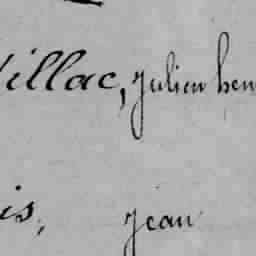 illac, Julien hen
is, Jean